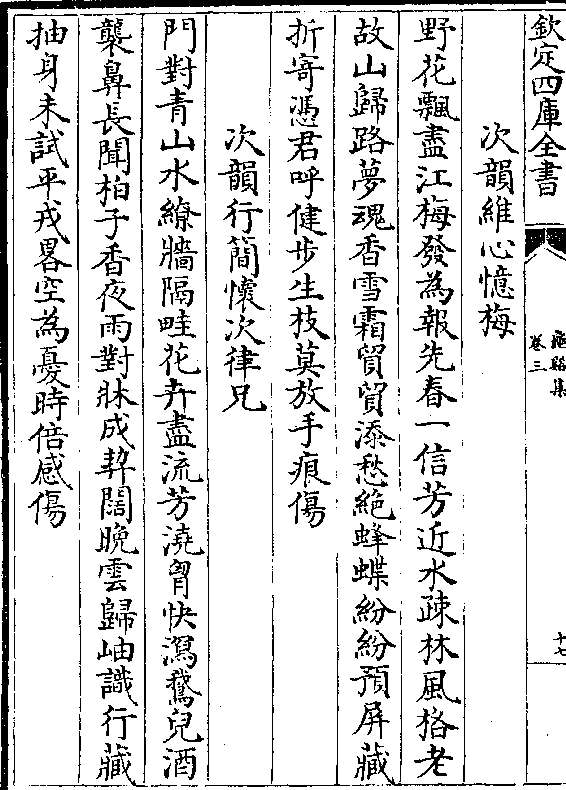 欽定四庫全書
龜谿集
卷三
十七
次韻維心憶梅
野花飄盡江梅發為報先春一信芳近水疎林風格老
故山歸路夢魂香雪霜貿貿添愁絶蜂蝶紛紛預屏藏
折寄憑君呼健步生枝莫放手痕傷
次韻行簡懷次律兄
門對青山水繚牆隔畦花卉盡流芳澆胷快瀉鵞兒酒
襲鼻長聞柏子香夜雨對牀成契闊晚雲歸岫識行藏
抽身未試平戎畧空為憂時倍感傷